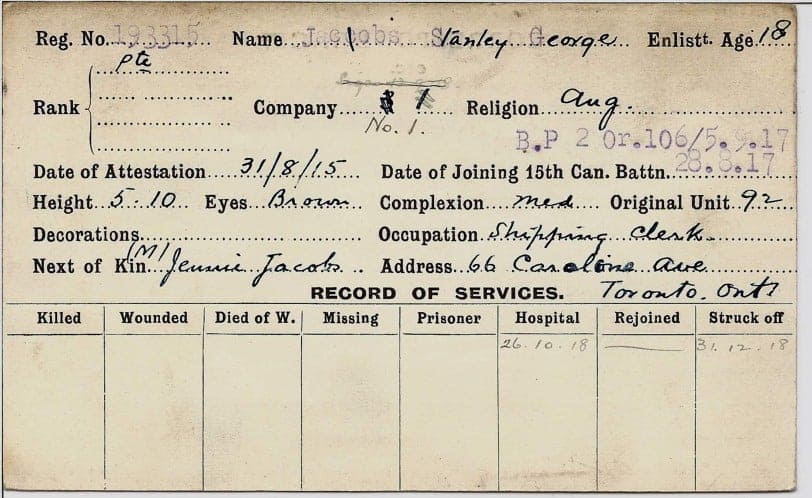 Reg. No. 193315 Name Jaccobs Stanley George Enlistt. Age 18
Pte
Rank Company 1 Religion Ang.
No. 1.
B.P 2 Or.106/5.9.17
Date of Attestation 31/8/15 Date of Joining 15th Can. Battn. 28.8.17
Height 5.10 Eyes Brown Complexion med Original Unit 92
Decorations Occupation Shipping Clerk
Next of Kin (M) Jennie Jacobs Address 66 Caroline Ave
RECORD OF SERVICES. Toronto. Ont
Killed Wounded Died of W. Missing Prisoner Hospital Rejoined Struck off
26.10.18 31.12.18